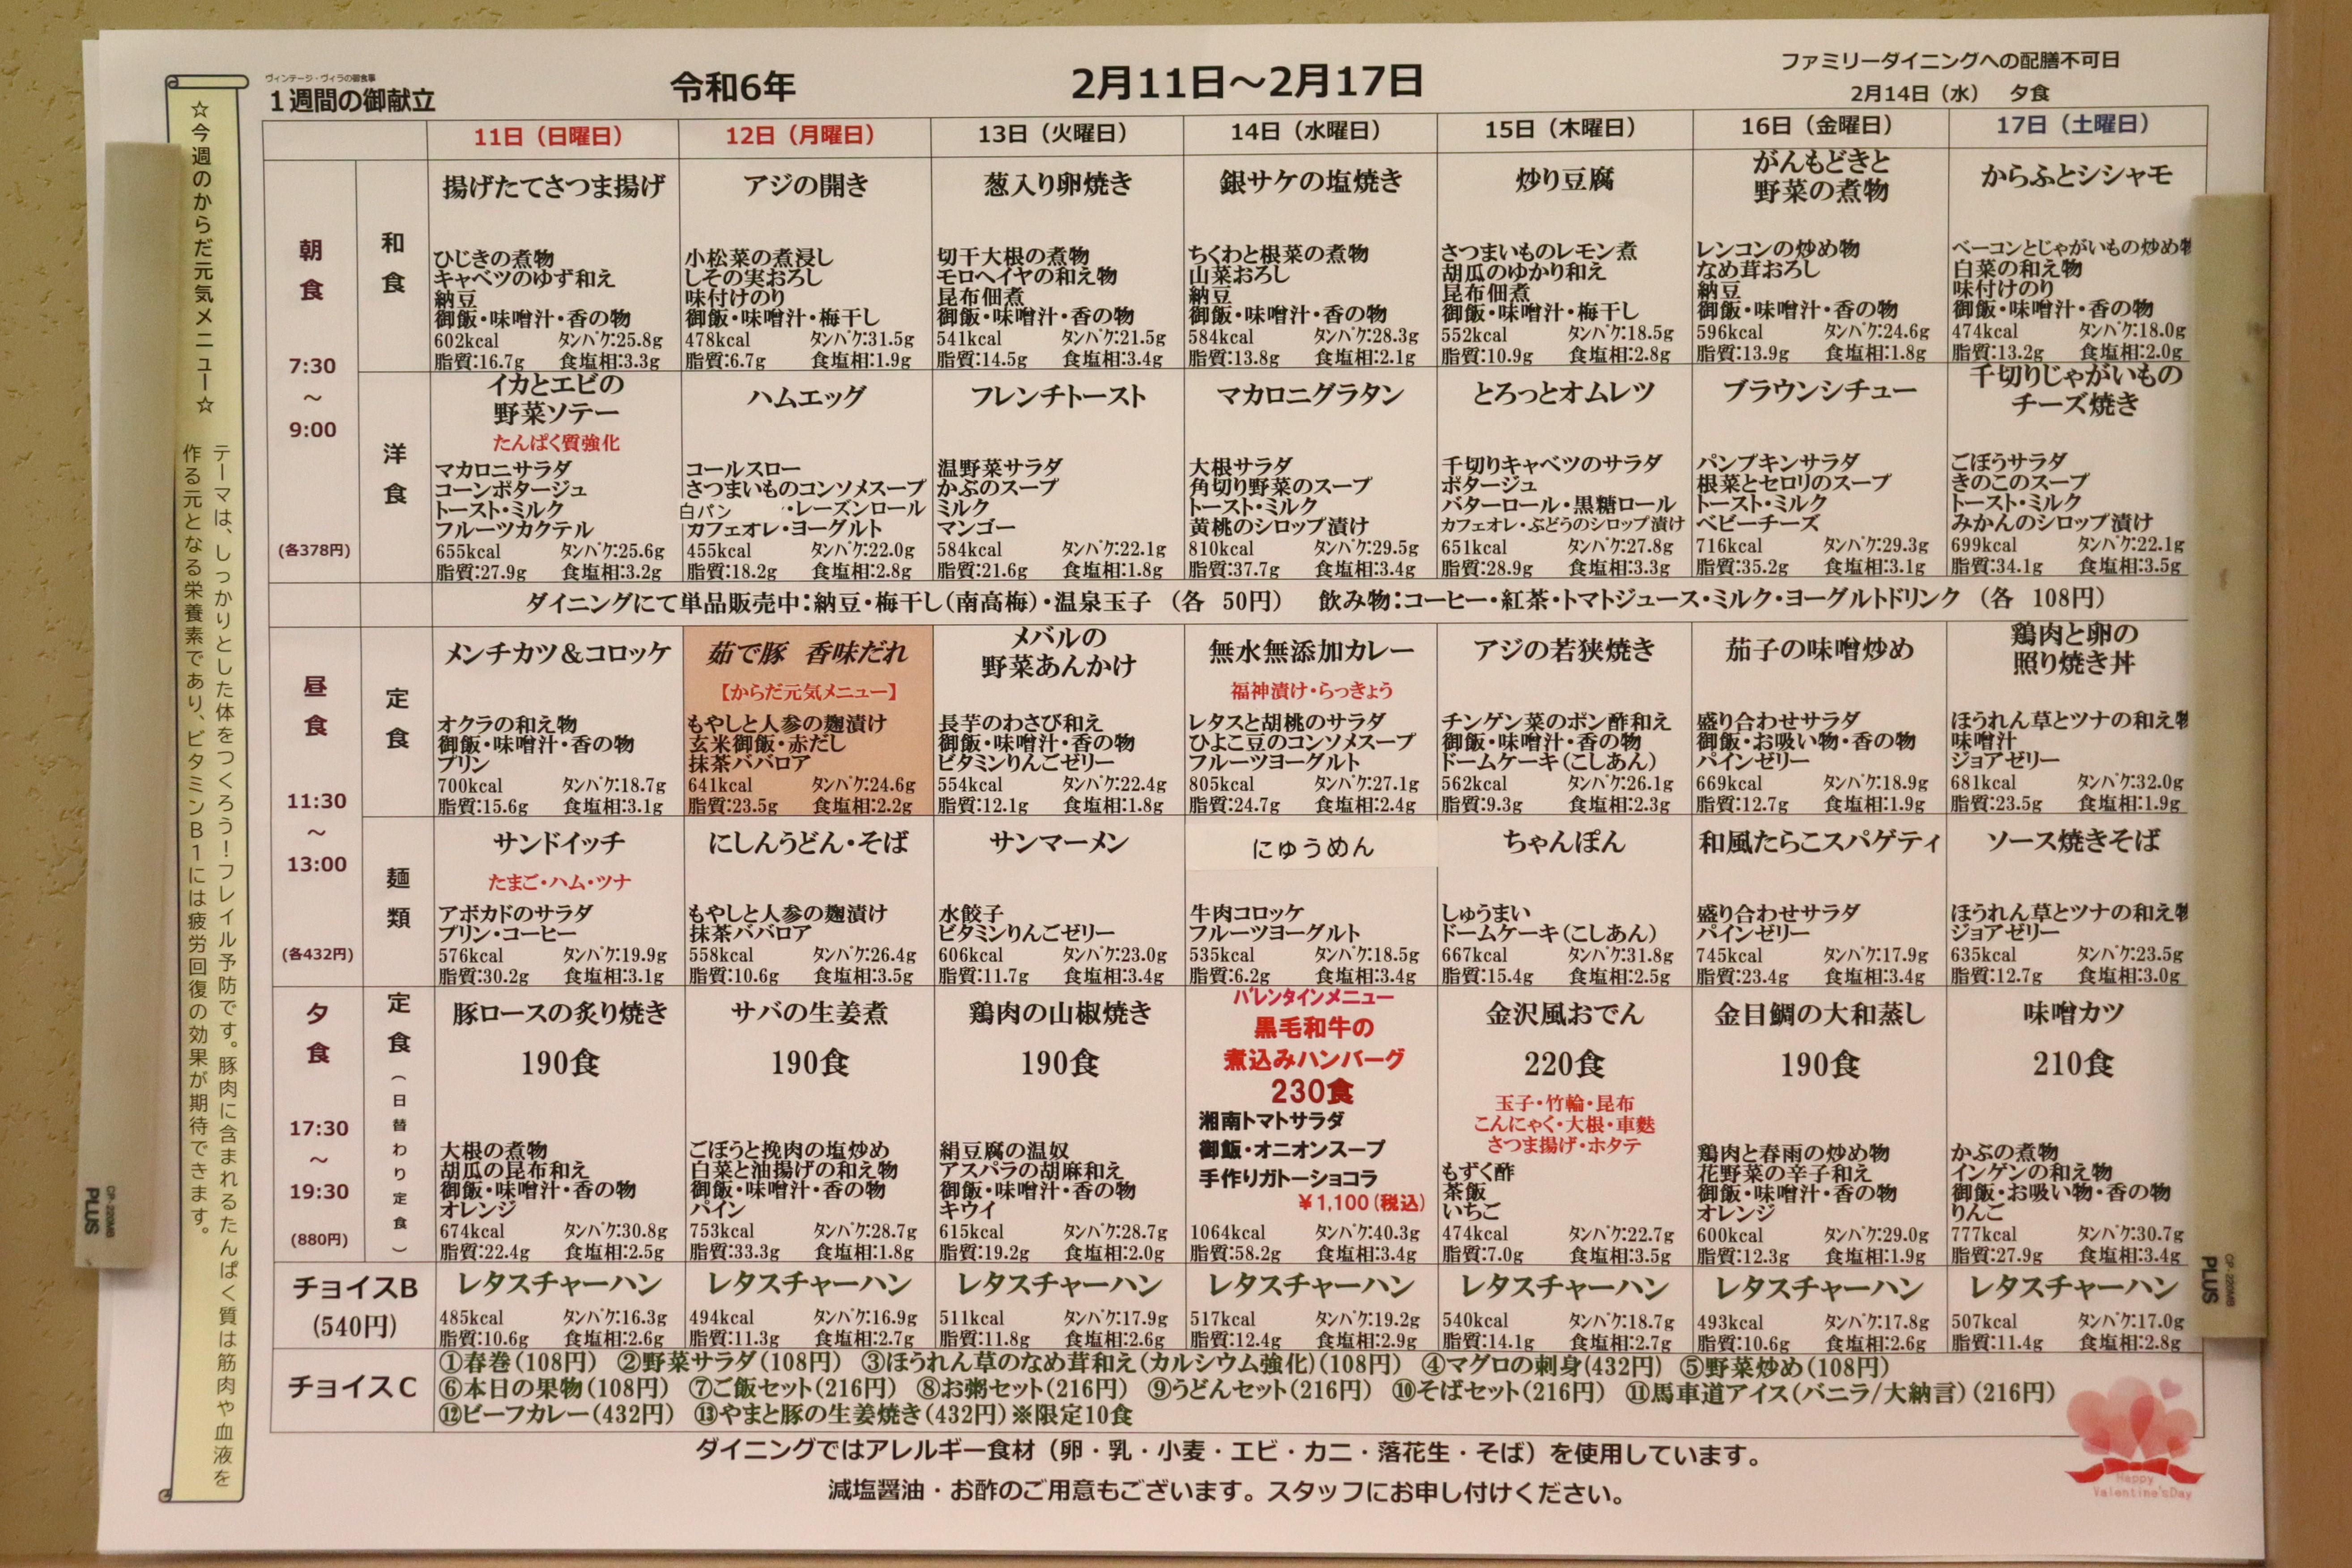 ヴィンテージ・ヴィラの御食事
1週間の御献立
令和6年
2月11日～2月17日
ファミリーダイニングへの配膳不可日
2月14日（水）　夕食
☆今週のからだ元気メニュー☆
テーマは、しっかりとした体をつくろう！フレイル予防です。豚肉に含まれるたんぱく質は筋肉や血液を
作る元となる栄養素であり、ビタミンB1には疲労回復の効果が期待できます。
11日（日曜日）
12日（月曜日）
13日（火曜日）
14日（水曜日）
15日（木曜日）
16日（金曜日）
17日（土曜日）
朝食
7:30
～
9:00
(各378円)
和食
揚げたてさつま揚げ
ひじきの煮物
キャベツのゆず和え
納豆
御飯・味噌汁・香の物
602kcal タンパク:25.8g
脂質:16.7g 食塩相:3.3g
アジの開き
小松菜の煮浸し
しその実おろし
味付けのり
御飯・味噌汁・梅干し
478kcal タンパク:31.5g
脂質:6.7g 食塩相:1.9g
葱入り卵焼き
切干大根の煮物
モロヘイヤの和え物
昆布佃煮
御飯・味噌汁・香の物
541kcal タンパク:21.5g
脂質:14.5g 食塩相:3.4g
銀サケの塩焼き
ちくわと根菜の煮物
山菜おろし
納豆
御飯・味噌汁・香の物
584kcal タンパク:28.3g
脂質:13.8g 食塩相:2.1g
炒り豆腐
さつまいものレモン煮
胡瓜のゆかり和え
昆布佃煮
御飯・味噌汁・梅干し
552kcal タンパク:18.5g
脂質:10.9g 食塩相:2.8g
がんもどきと
野菜の煮物
レンコンの炒め物
なめ茸おろし
納豆
御飯・味噌汁・香の物
596kcal タンパク:24.6g
脂質:13.9g 食塩相:1.8g
からふとシシャモ
ベーコンとじゃがいもの炒め物
白菜の和え物
味付けのり
御飯・味噌汁・香の物
474kcal タンパク:18.0g
脂質:13.2g 食塩相:2.0g
洋食
イカとエビの
野菜ソテー
たんぱく質強化
マカロニサラダ
コーンポタージュ
トースト・ミルク
フルーツカクテル
655kcal タンパク:25.6g
脂質:27.9g 食塩相:3.2g
ハムエッグ
コールスロー
さつまいものコンソメスープ
白パン ・レーズンロール
カフェオレ・ヨーグルト
455kcal タンパク:22.0g
脂質:18.2g 食塩相:2.8g
フレンチトースト
温野菜サラダ
かぶのスープ
ミルク
マンゴー
584kcal タンパク:22.1g
脂質:21.6g 食塩相:1.8g
マカロニグラタン
大根サラダ
角切り野菜のスープ
トースト・ミルク
黄桃のシロップ漬け
810kcal タンパク:29.5g
脂質:37.7g 食塩相:3.4g
とろっとオムレツ
千切りキャベツのサラダ
ポタージュ
バターロール・黒糖ロール
カフェオレ・ぶどうのシロップ漬け
651kcal タンパク:27.8g
脂質:28.9g 食塩相:3.3g
ブラウンシチュー
パンプキンサラダ
根菜とセロリのスープ
トースト・ミルク
ベビーチーズ
716kcal タンパク:29.3g
脂質:35.2g 食塩相:3.1g
千切りじゃがいもの
チーズ焼き
ごぼうサラダ
きのこのスープ
トースト・ミルク
みかんのシロップ漬け
699kcal タンパク:22.1g
脂質:34.1g 食塩相:3.5g
ダイニングにて単品販売中：納豆・梅干し（南高梅）・温泉玉子　（各　50円）　　飲み物：コーヒー・紅茶・トマトジュース・ミルク・ヨーグルトドリンク　（各　108円）
昼食
11:30
～
13:00
(各432円)
定食
メンチカツ＆コロッケ
オクラの和え物
御飯・味噌汁・香の物
プリン
700kcal タンパク:18.7g
脂質:15.6g 食塩相:3.1g
茹で豚　香味だれ
【からだ元気メニュー】
もやしと人参の麹漬け
玄米御飯・赤だし
抹茶ババロア
641kcal タンパク:24.6g
脂質:23.5g 食塩相:2.2g
メバルの
野菜あんかけ
長芋のわさび和え
御飯・味噌汁・香の物
ビタミンりんごゼリー
554kcal タンパク:22.4g
脂質:12.1g 食塩相:1.8g
無水無添加カレー
福神漬け・らっきょう
レタスと胡桃のサラダ
ひよこ豆のコンソメスープ
フルーツヨーグルト
805kcal タンパク:27.1g
脂質:24.7g 食塩相:2.4g
アジの若狭焼き
チンゲン菜のポン酢和え
御飯・味噌汁・香の物
ドームケーキ（こしあん）
562kcal タンパク:26.1g
脂質:9.3g 食塩相:2.3g
茄子の味噌炒め
盛り合わせサラダ
御飯・お吸い物・香の物
パインゼリー
669kcal タンパク:18.9g
脂質:12.7g 食塩相:1.9g
鶏肉と卵の
照り焼き丼
ほうれん草とツナの和え物
味噌汁
ジョアゼリー
681kcal タンパク:32.0g
脂質:23.5g 食塩相:1.9g
麺類
サンドイッチ
たまご・ハム・ツナ
アボカドのサラダ
プリン・コーヒー
576kcal タンパク:19.9g
脂質:30.2g 食塩相:3.1g
にしんうどん・そば
もやしと人参の麹漬け
抹茶ババロア
558kcal タンパク:26.4g
脂質:10.6g 食塩相:3.5g
サンマーメン
水餃子
ビタミンりんごゼリー
606kcal タンパク:23.0g
脂質:11.7g 食塩相:3.4g
にゅうめん
牛肉コロッケ
フルーツヨーグルト
535kcal タンパク:18.5g
脂質:6.2g 食塩相:3.4g
ちゃんぽん
しゅうまい
ドームケーキ（こしあん）
667kcal タンパク:31.8g
脂質:15.4g 食塩相:2.5g
和風たらこスパゲティ
盛り合わせサラダ
パインゼリー
745kcal タンパク:17.9g
脂質:23.4g 食塩相:3.4g
ソース焼きそば
ほうれん草とツナの和え物
ジョアゼリー
635kcal タンパク:23.5g
脂質:12.7g 食塩相:3.0g
夕食
17:30
～
19:30
(880円)
定食（日替わり定食）
豚ロースの炙り焼き
190食
大根の煮物
胡瓜の昆布和え
御飯・味噌汁・香の物
オレンジ
674kcal タンパク:30.8g
脂質:22.4g 食塩相:2.5g
サバの生姜煮
190食
ごぼうと挽肉の塩炒め
白菜と油揚げの和え物
御飯・味噌汁・香の物
パイン
753kcal タンパク:28.7g
脂質:33.3g 食塩相:1.8g
鶏肉の山椒焼き
190食
絹豆腐の温奴
アスパラの胡麻和え
御飯・味噌汁・香の物
キウイ
615kcal タンパク:28.7g
脂質:19.2g 食塩相:2.0g
バレンタインメニュー
黒毛和牛の
煮込みハンバーグ
230食
湘南トマトサラダ
御飯・オニオンスープ
手作りガトーショコラ
￥1,100（税込）
1064kcal タンパク:40.3g
脂質:58.2g 食塩相:3.4g
金沢風おでん
220食
玉子・竹輪・昆布
こんにゃく・大根・車麩
さつま揚げ・ホタテ
もずく酢
茶飯
いちご
474kcal タンパク:22.7g
脂質:7.0g 食塩相:3.5g
金目鯛の大和蒸し
190食
鶏肉と春雨の炒め物
花野菜の辛子和え
御飯・味噌汁・香の物
オレンジ
600kcal タンパク:29.0g
脂質:12.3g 食塩相:1.9g
味噌カツ
210食
かぶの煮物
インゲンの和え物
御飯・お吸い物・香の物
りんご
777kcal タンパク:30.7g
脂質:27.9g 食塩相:3.4g
チョイスB
(540円)
レタスチャーハン
485kcal タンパク:16.3g
脂質:10.6g 食塩相:2.6g
レタスチャーハン
494kcal タンパク:16.9g
脂質:11.3g 食塩相:2.7g
レタスチャーハン
511kcal タンパク:17.9g
脂質:11.8g 食塩相:2.6g
レタスチャーハン
517kcal タンパク:19.2g
脂質:12.4g 食塩相:2.9g
レタスチャーハン
540kcal タンパク:18.7g
脂質:14.1g 食塩相:2.7g
レタスチャーハン
493kcal タンパク:17.8g
脂質:10.6g 食塩相:2.6g
レタスチャーハン
507kcal タンパク:17.0g
脂質:11.4g 食塩相:2.8g
チョイスC
①春巻（108円）　②野菜サラダ（108円）　③ほうれん草のなめ茸和え（カルシウム強化）（108円）　④マグロの刺身（432円）　⑤野菜炒め（108円）
⑥本日の果物（108円）　⑦ご飯セット（216円）　⑧お粥セット（216円）　⑨うどんセット（216円）　⑩そばセット（216円）　⑪馬車道アイス（バニラ/大納言）（216円）
⑫ビーフカレー（432円）　⑬やまと豚の生姜焼き（432円）※限定10食
ダイニングではアレルギー食材（卵・乳・小麦・エビ・カニ・落花生・そば）を使用しています。
減塩醤油・お酢のご用意もございます。スタッフにお申し付けください。
Happy
Valentine'sDay
PLUS
CP-220MB
PLUS
CP-220MB